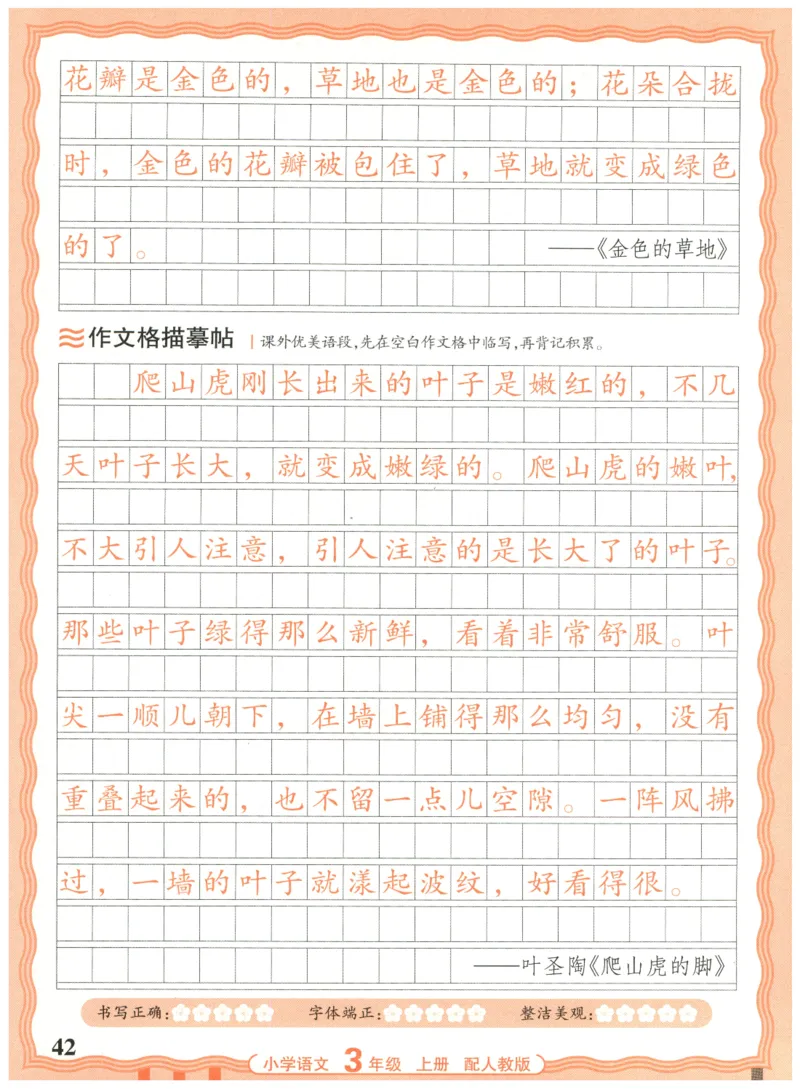 花瓣是金色的，草地也是金色的；花朵合拢
时，金色的花瓣被包住了，草地就变成绿色
的了。
——《金色的草地》
作文格描摹帖 | 课外优美语段,先在空白作文格中临写,再背记积累。
爬山虎刚长出来的叶子是嫩红的，不几
天叶子长大，就变成嫩绿的。爬山虎的嫩叶，
不大引人注意，引人注意的是长大了的叶子。
那些叶子绿得那么新鲜，看着非常舒服。叶
尖一顺儿朝下，在墙上铺得那么均匀，没有
重叠起来的，也不留一点儿空隙。一阵风拂
过，一墙的叶子就漾起波纹，好看得很。
——叶圣陶《爬山虎的脚》
书写正确: 字体端正: 整洁美观:
42
小学语文 3年级 上册 配人教版